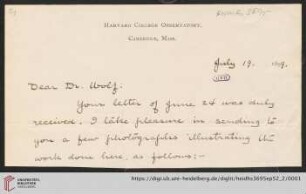 HARVARD COLLEGE OBSERVATORY,
CAMBRIDGE, MASS.
July 19.
Dear Dr. Wolf:
Your letter of June 24 was duly
received. I take pleasure in sending to
you a few photographs illustrating the
work done here, as follows:-
https://digi.ub.uni-heidelberg.de/diglit/heidhs3695np52_2/0001